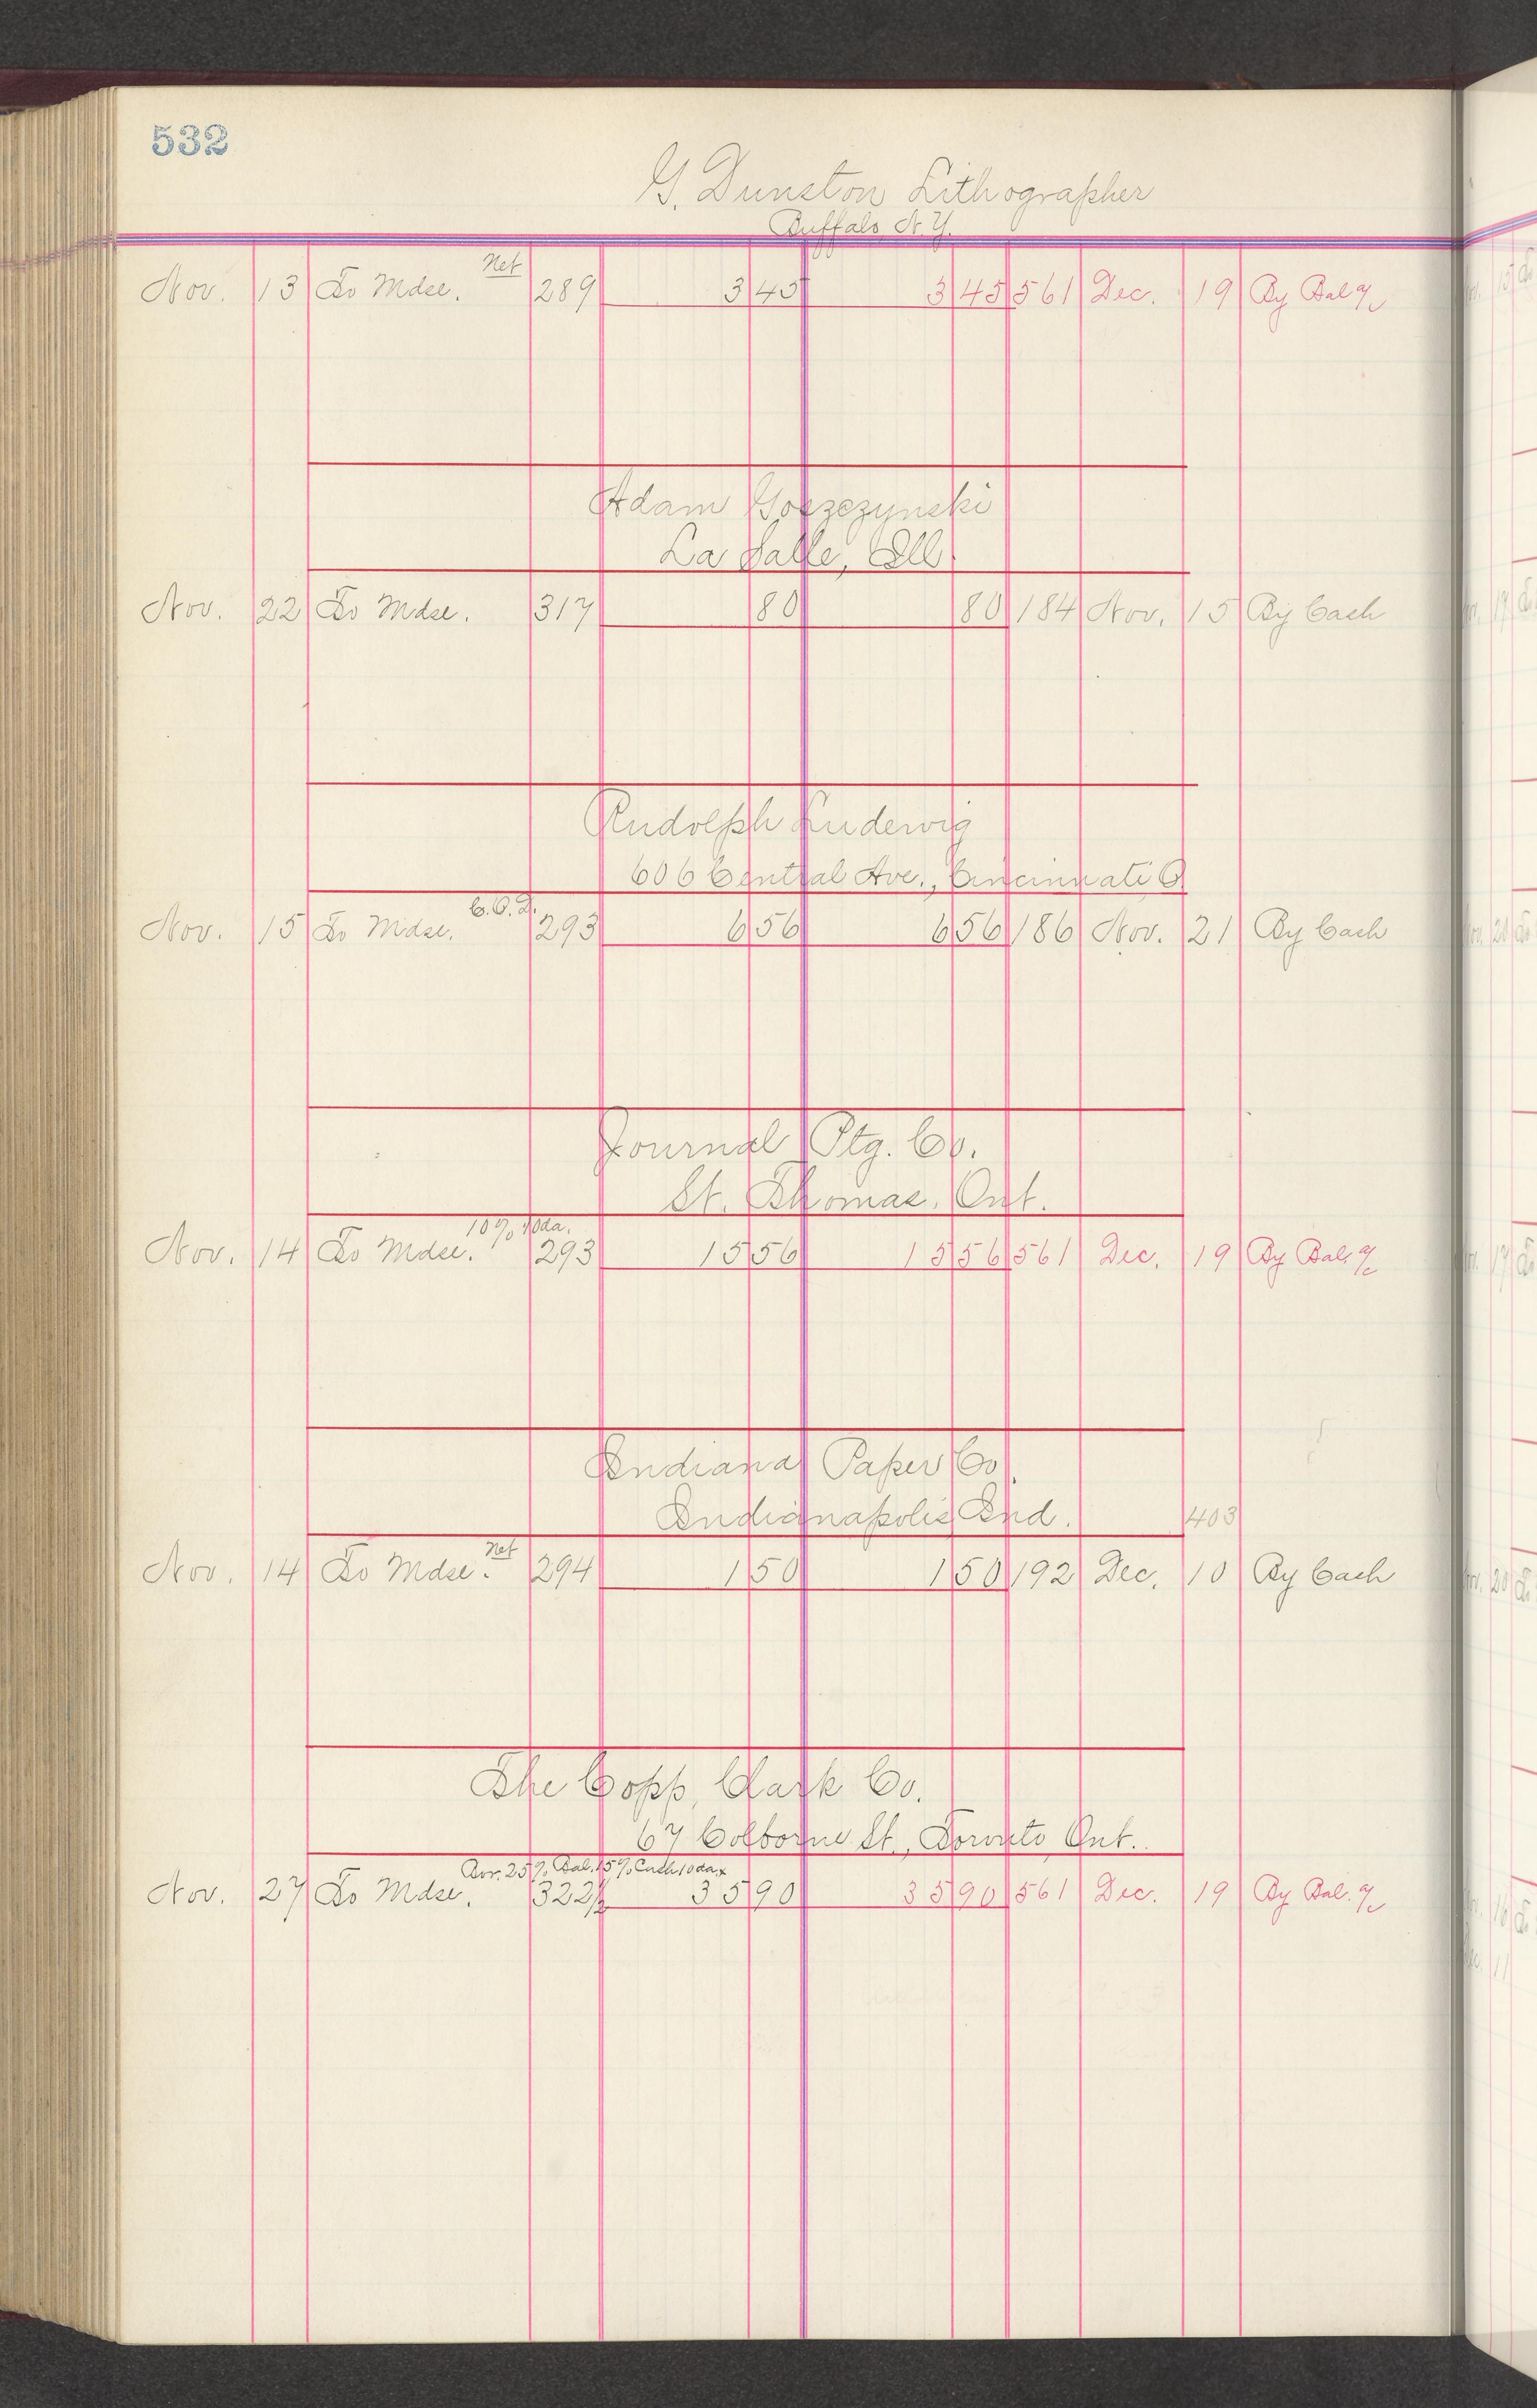 532
G. Dunston Lithographer
Buffalo, N.Y.
Net
Nov. 13 To Mdse. 289 3 45 3 45 561 Dec. 19 By Bal a/c
Adam Goszczynski
La Salle, Ill.
Nov. 22 To Mdse. 317 80 80 184 Nov. 15 By Cash
Rudolph Ludewig
606 Central Ave., Cincinnati O.
C.O.D.
Nov. 15 To Mdse. 293 6 56 6 56 186 Nov. 21 By Cash
Journal Ptg. Co.
St. Thomas, Ont.
10% 10da.
Nov. 14 To Mdse. 293 15 56 15 56 561 Dec. 19 By Bal. a/c
Indiana Paper Co.
Indianapolis, Ind. 403
Net
Nov. 14 To Mdse. 294 1 50 1 50 192 Dec. 10 By Cash
The Copp, Clark Co.
67 Colborne St., Toronto, Ont.
25% Bal. 15% Cash 10 da.
Nov. 27 To Mdse. 322/2 35 90 35 90 561 Dec. 19 By Bal. a/c